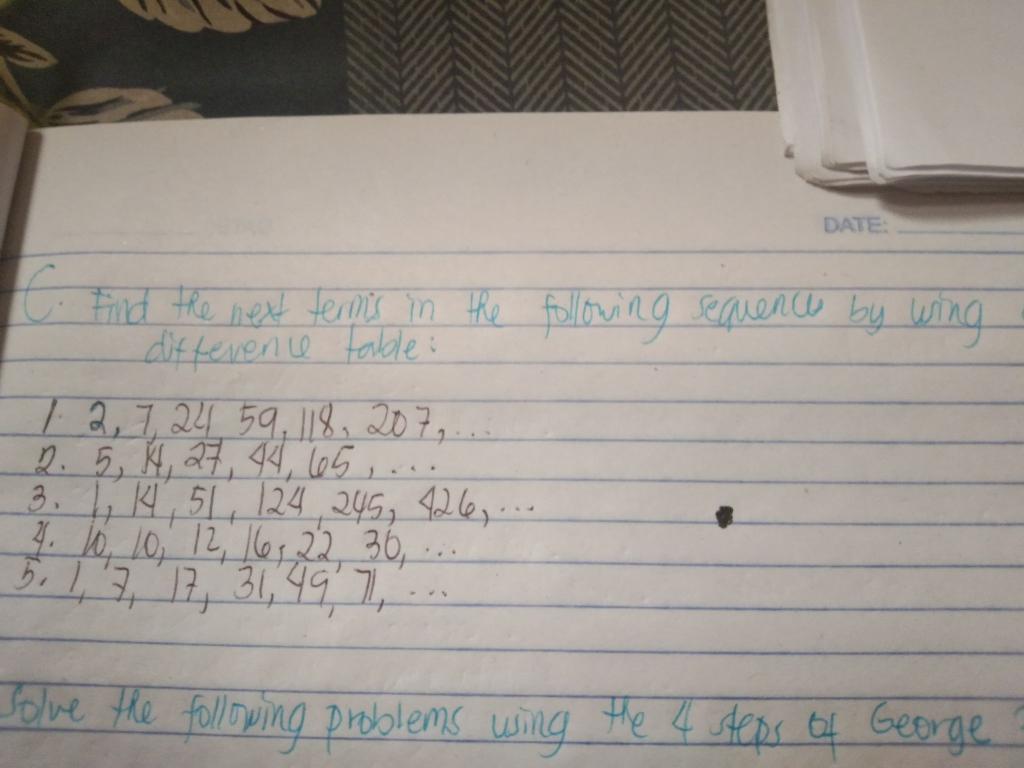 DATE:
C. Find the next terms in the following sequence by using
difference table:
1. 2, 7, 24, 59, 118, 207, ...
2. 5, 14, 27, 44, 65, ...
3. 1, 14, 51, 124, 245, 426, ...
4. 10, 10, 12, 16, 22, 30, ...
5. 1, 7, 17, 31, 49, 71, ...
Solve the following problems using the 4 steps of George